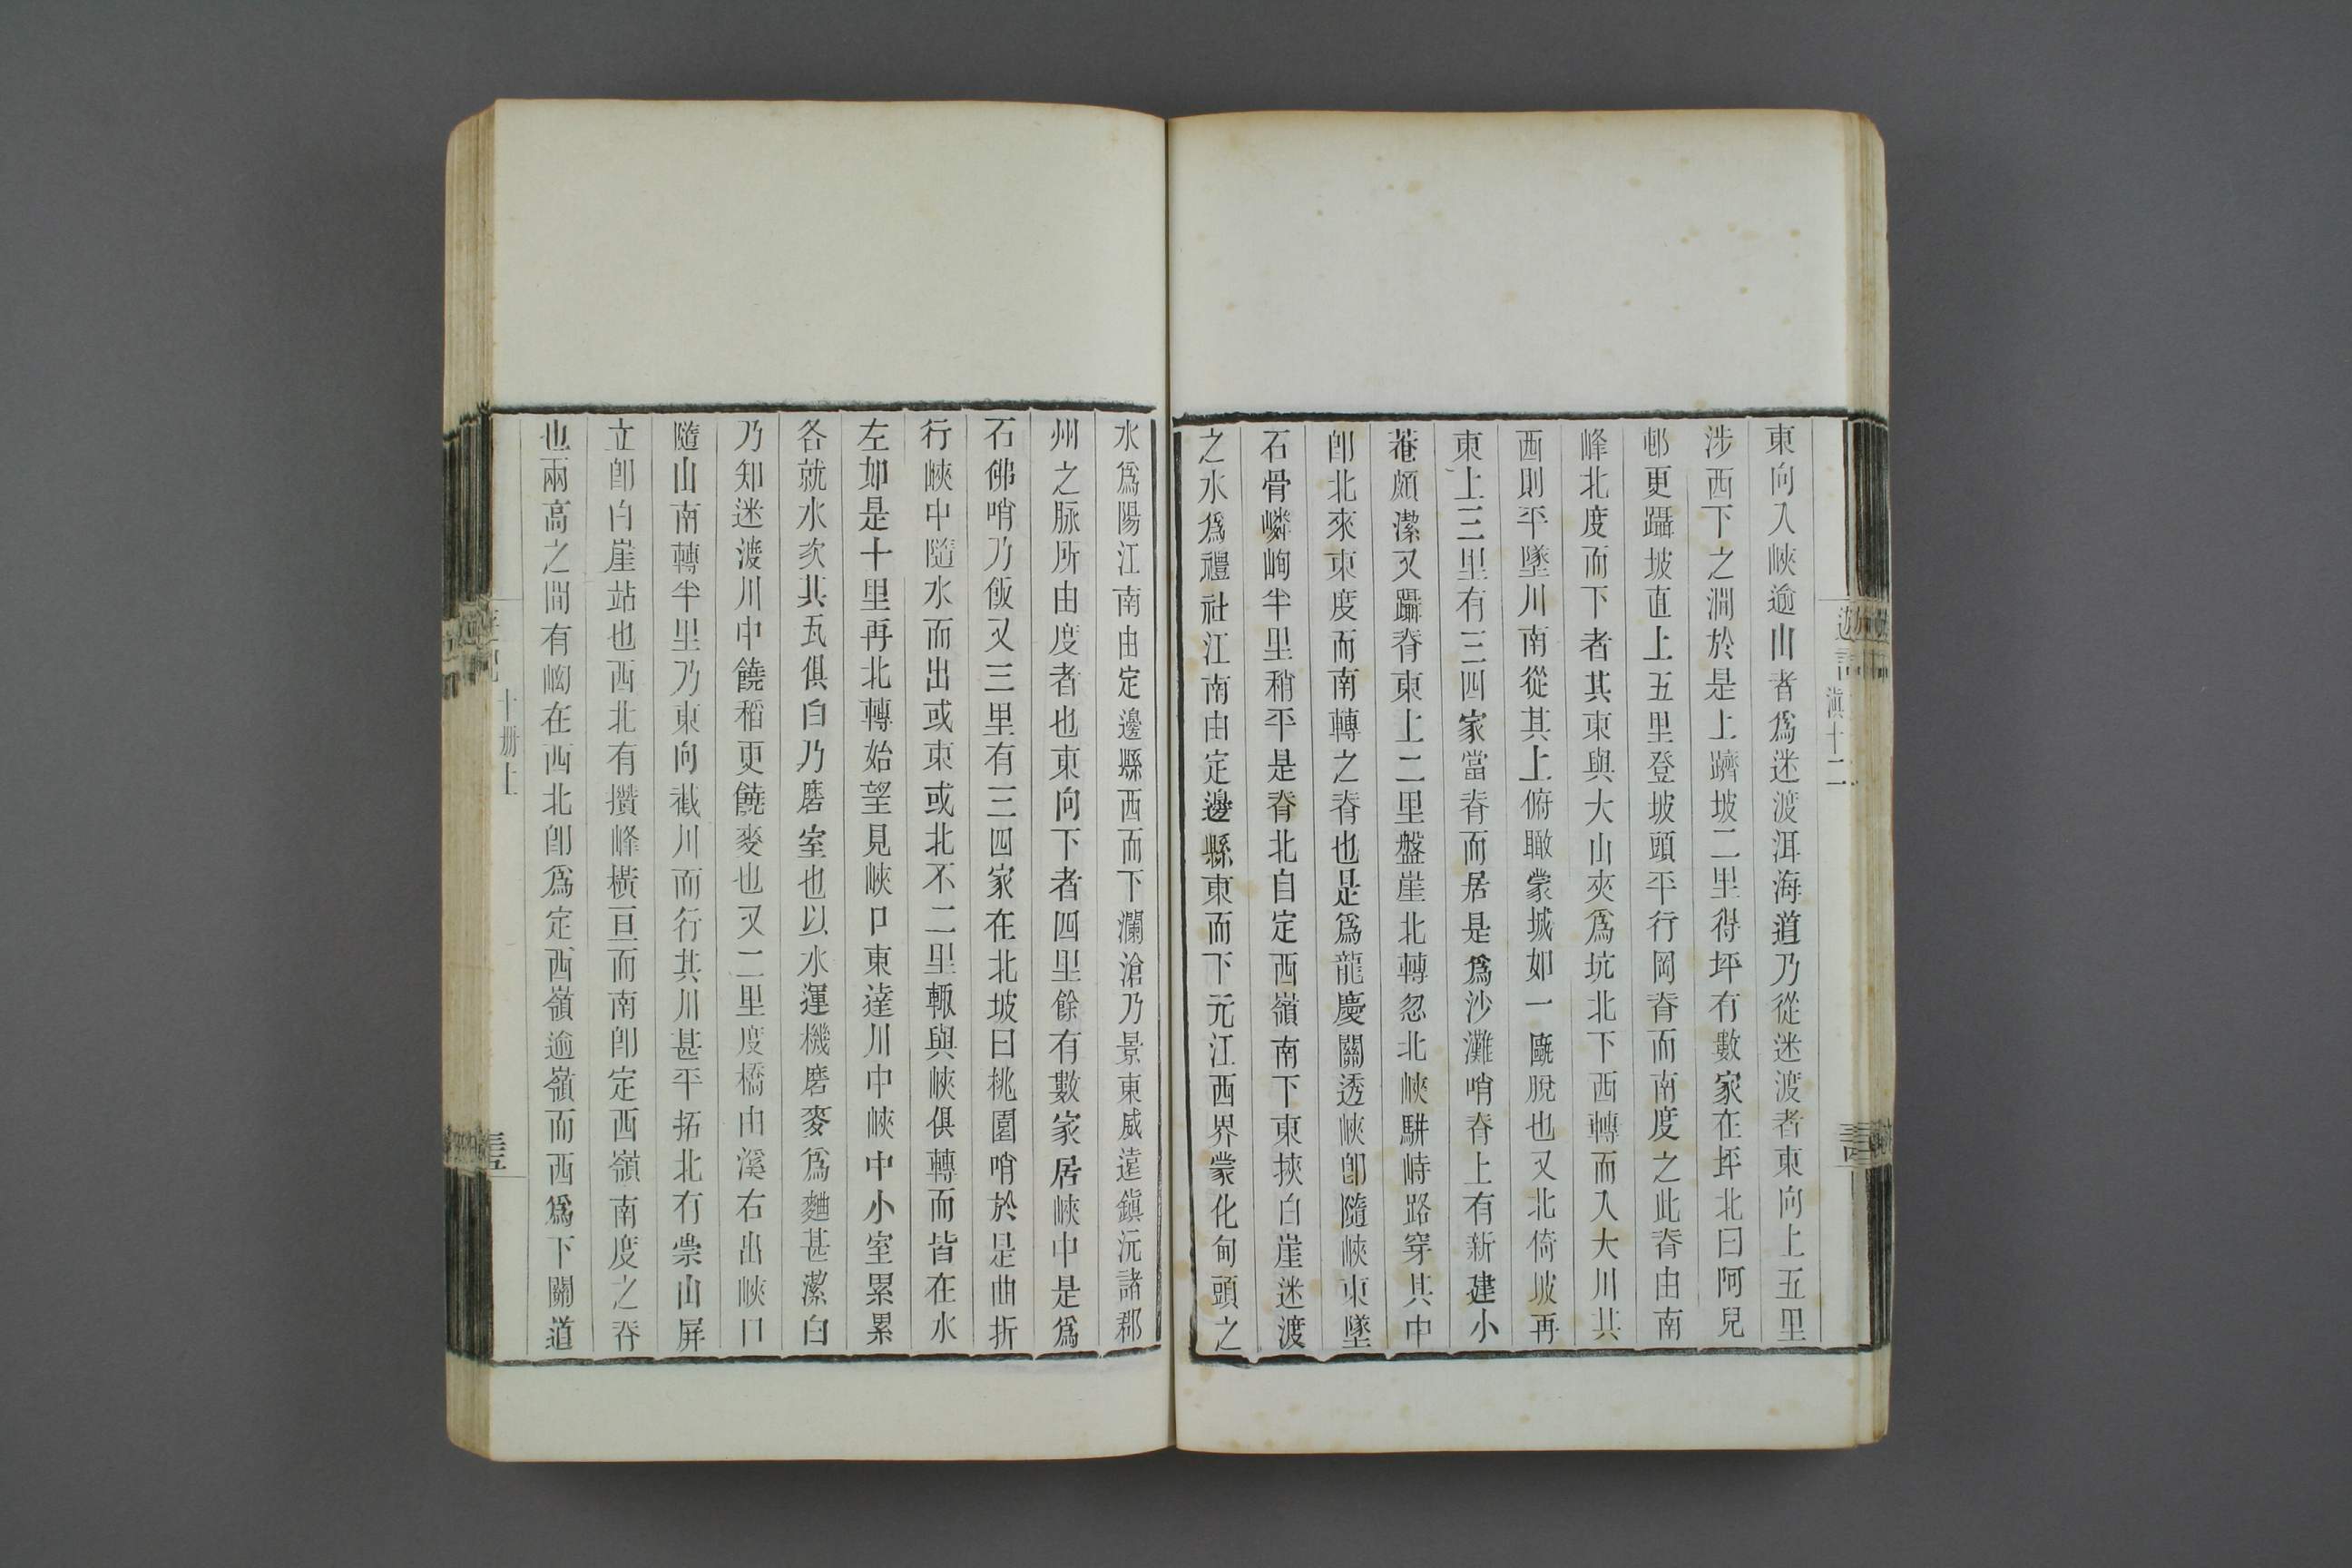 東向入峽逾山者爲迷渡洱海道乃從迷渡者東向上五里
涉西下之澗於是上躋坡二里得坪有數家在坪北曰阿兒
邨更躡坡直上五里登坡頭平行岡脊而南度之此脊由南
峰北度而下者其東與大山夾爲坑北下西轉而入大川其
西則平墜川南從其上俯瞰蒙城如一甌脫也又北倚坡再
東上三里有三四家當脊而居是爲沙灘哨脊上有新建小
菴頗潔又躡脊東上二里盤崖北轉忽北峽騈峙路穿其中
卽北來東度而南轉之脊也是爲龍慶關透峽卽隨峽東墜
石骨嶙峋半里稍平是脊北自定西嶺南下東挾白崖迷渡
之水爲禮社江南由定邊縣東而下元江西界蒙化甸頭之
遊記
滇十二
水爲陽江南由定邊縣西而下瀾滄乃景東威遠鎭沅諸郡
州之脉所由度者也東向下者四里餘有數家居峽中是爲
石佛哨乃飯又三里有三四家在北坡曰桃園哨於是曲折
行峽中隨水而出或東或北不二里輒與峽俱轉而皆在水
左如是十里再北轉始望見峽口東達川中峽中小室累累
各就水次其瓦俱白乃磨室也以水運機磨麥爲麵甚潔白
乃知迷渡川中饒稻更饒麥也又二里度橋由溪右出峽口
隨山南轉半里乃東向截川而行其川甚平拓北有崇山屏
立卽白崖站也西北有攢峰橫亘而南卽定西嶺南度之脊
也兩高之間有㘭在西北卽爲定西嶺逾嶺而西爲下關道
十册上